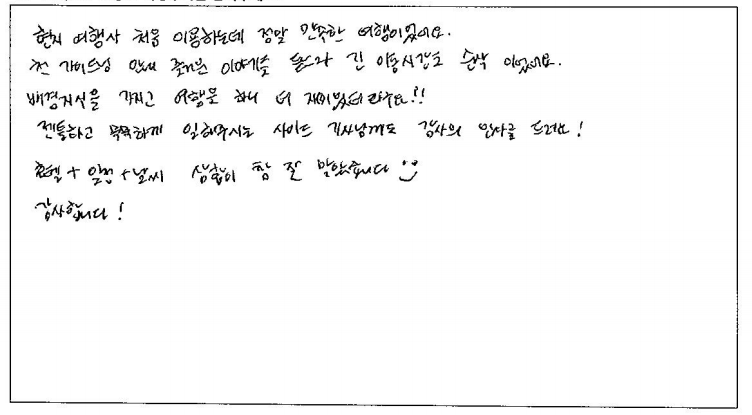 현지 여행사 처음 이용하는데 정말 만족한 여행이었어요.
전 가이드님 안내 즐거운 이야기를 듣느라 긴 이동시간도 순삭 이었어요.
배경지식을 가지고 여행을 하니 더 재미있더라구요!!
젠틀하고 묵묵하게 일해주시는 사이드 기사님께도 감사의 인사를 드려요!
호텔 + 일정 + 날씨 삼합이 참 잘 맞았습니다
감사합니다!